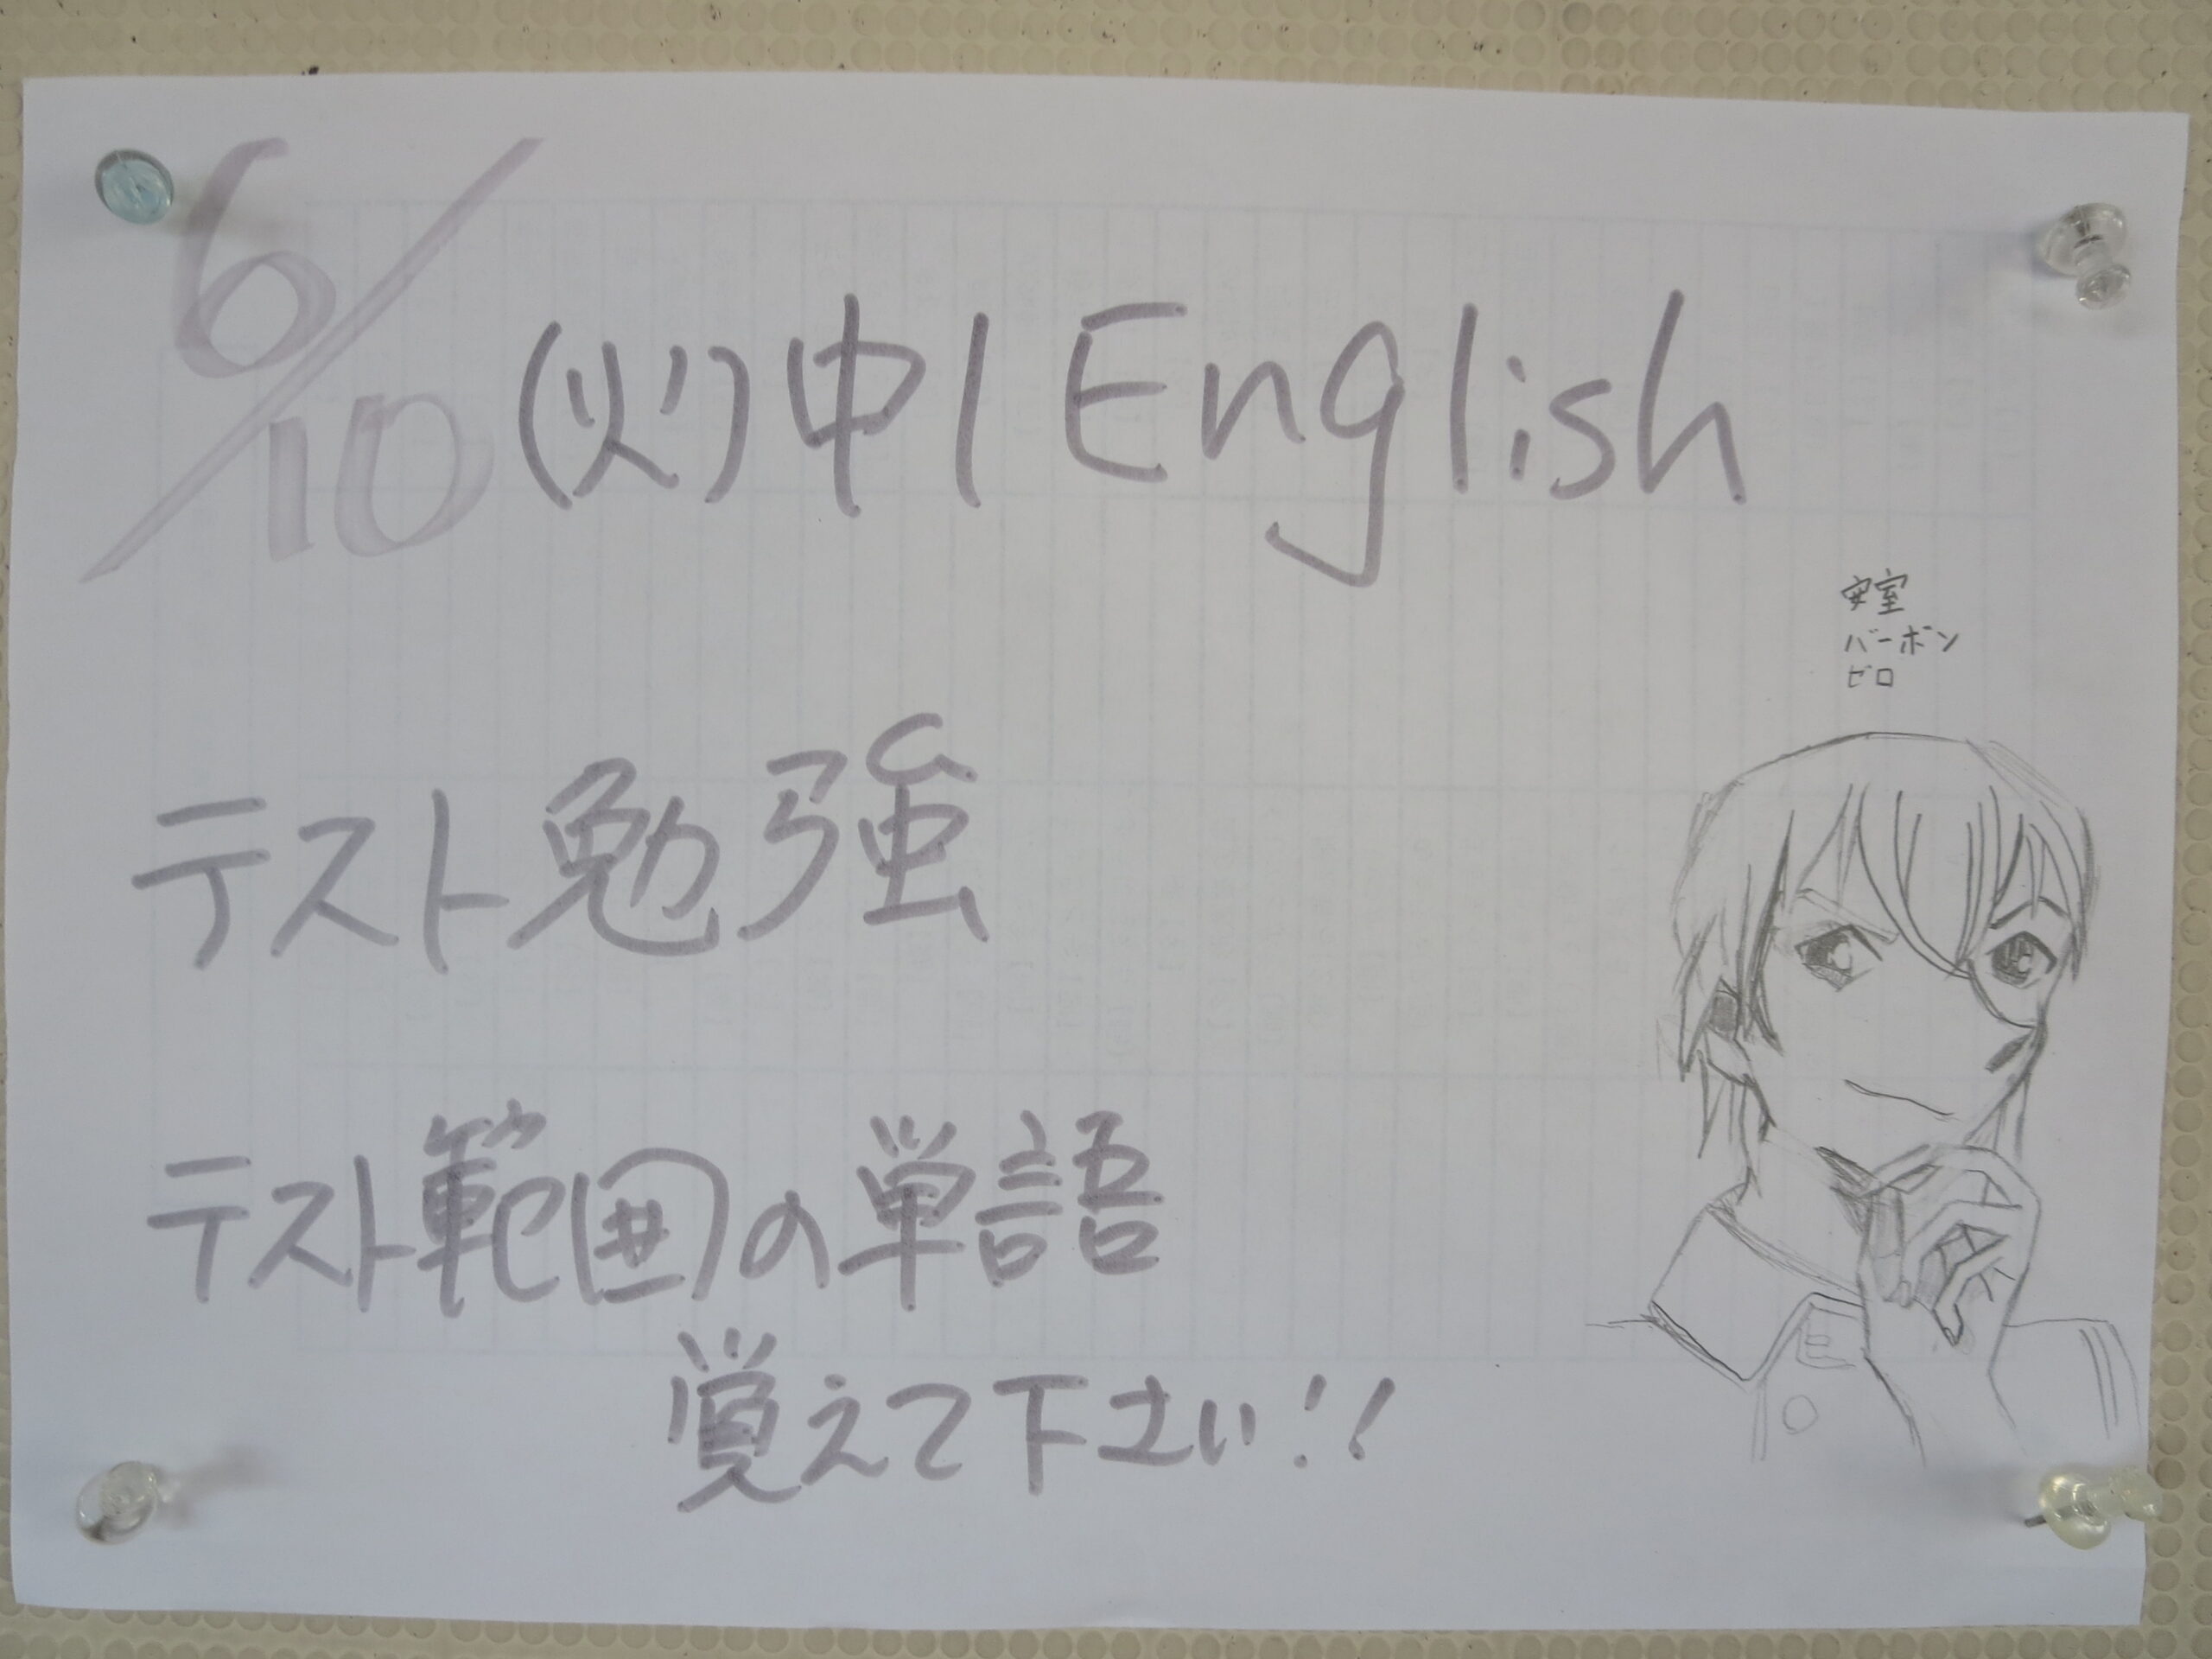 6/10(火)中1 English
安室
バーボン
ゼロ
テスト勉強
テスト範囲の単語
覚えて下さい!!